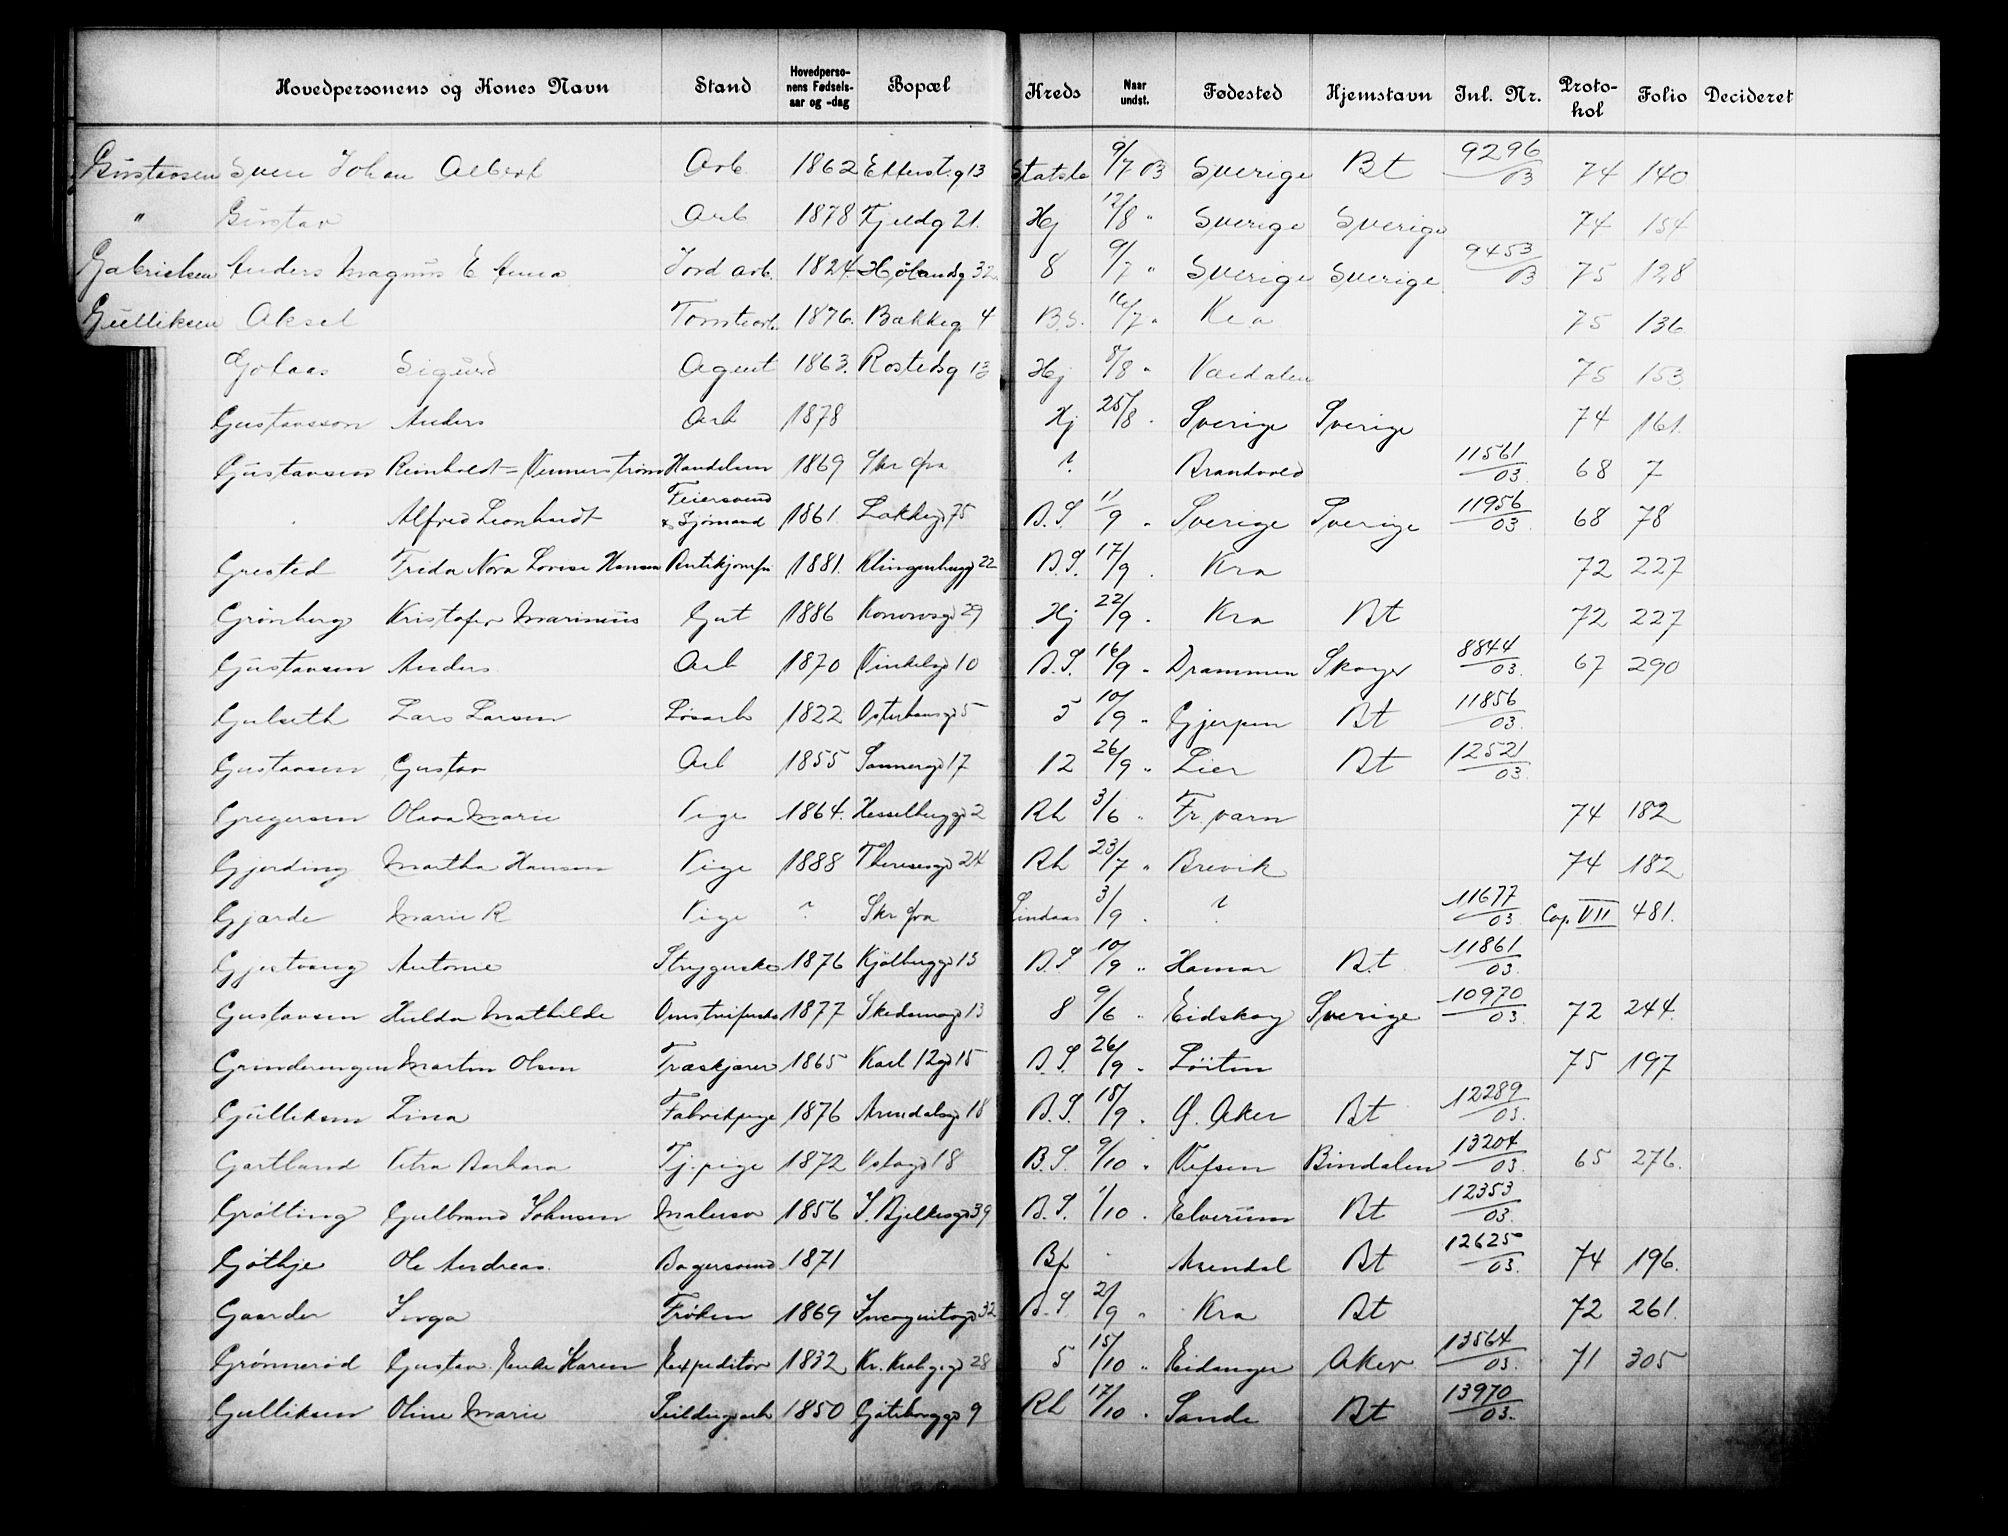 Hovedpersonens og Kones Navn Stand Hovedpersonens Fødselsaar og -dag Bopæl Kreds Naar undst. Fødested Hjemstavn Inl. Nr. Protokol Folio Decideret
Gustavsen Sven Johan Albert Arb. 1862 Etterstg 13 9/7 03 Sverige Bt 9296/03 74 140
" Gustav Arb 1878 Fjeldg 21. Hj 12/8 " Sverige Sverige 74 154
Gabrielsen Anders Magnus E Anna Jord arb. 1824 Hølandsg 32 8 9/7 " Sverige Sverige 9453/03 75 128
Gulliksen Aksel Tomtearb. 1876. Bakkeg 4 B.S. 16/7 " Kra 75 136
Golaas Sigurd Agent 1863. Rostedsg 13 Hj 8/8 " Værdalen 75 153
Gustavsson Anders Arb 1878 Hj 25/8 " Sverige Sverige 74 161.
Gustavsen Reinholdt = Vennerstrøm Handelsm 1869 Skr fra ? Brandvold 11561/03 68 7
" Alfred Leonhardt Feiersvend & Sjømand 1861. Lakkeg 75 B.S. 11/9 " Sverige Sverige 11956/03 68 78
Grested Frida Nora Lovise Hansen Butikjomfr 1881. Klingenbergg 22 B.S. 17/9 " Kra 72 227
Grønberg Kristofer Marinius Gut 1886 Konowsg 29 Hj 22/9 " Kra Bt 72 227
Gustavsen Anders Arb 1870 Vinkelg 10 B.S. 16/9 " Drammen Skoger 8844/03 67 290
Gulseth Lars Larsen Løsarb 1822 Osterhausg 5 5 10/9 " Gjerpen Bt 11856/03
Gustavsen Gustav Arb 1855 Sannerg 17 12 26/9 " Lier Bt 12521/03
Gregersen Olava Marie Pige 1864. Hesselbergg 2 Rh 3/6 " Fr.værn 74 182
Gjerding Martha Hansen Pige 1888 Theresesg 24 Rh 23/7 " Brevik 74 182
Gjærde Marie R Pige ? Skr fra Lindaas 3/9 " ? 11677/03 Cop. VII 481.
Gjestvang Antonie Strygerske 1876 Kjølbergg 13 B.S 10/9 " Hamar B.t 11861/03
Gustavsen Hulda Mathilde 1877 Skedsmog 13 8 9/6 " Eidskog Sverige 10970/03 72 244.
Grinderengen Martin Olsen Træskjærer 1865 Karl 12g 15 B.S. 26/9 " Løiten 75 197
Gulliksen Lina Fabrikpige 1876 Arendalsg 18 B.S. 18/9 " Ø. Aker Bt 12289/03
Gartland Petra Barbara Tj.pige 1872 18 B.S. 9/10 " Vefsen Bindalen 13204/03 65 276.
Grøtting Gulbrand Johnsen Malersv 1856 J. Bjelkesg 39 B.S. 1/10 " Elverum Bt 12353/03
Gøthje Ole Andreas Bagersvend 1871 Bf " Arendal Bt 12625/03 74 196.
Gaarder Inga Frøken 1869 Incognitog 32 B.S. 2/9 " Kra Bt 72 261.
Grønnerød Gustav. Enke Karen Expeditør 1832 Kr. Krohgsg 28 5 15/10 " Eidanger Aker 13564/03 71 305
Gulliksen Oline Marie 1850 Gøteborgg 9 Rh 17/10 " Sande Bt 13970/03